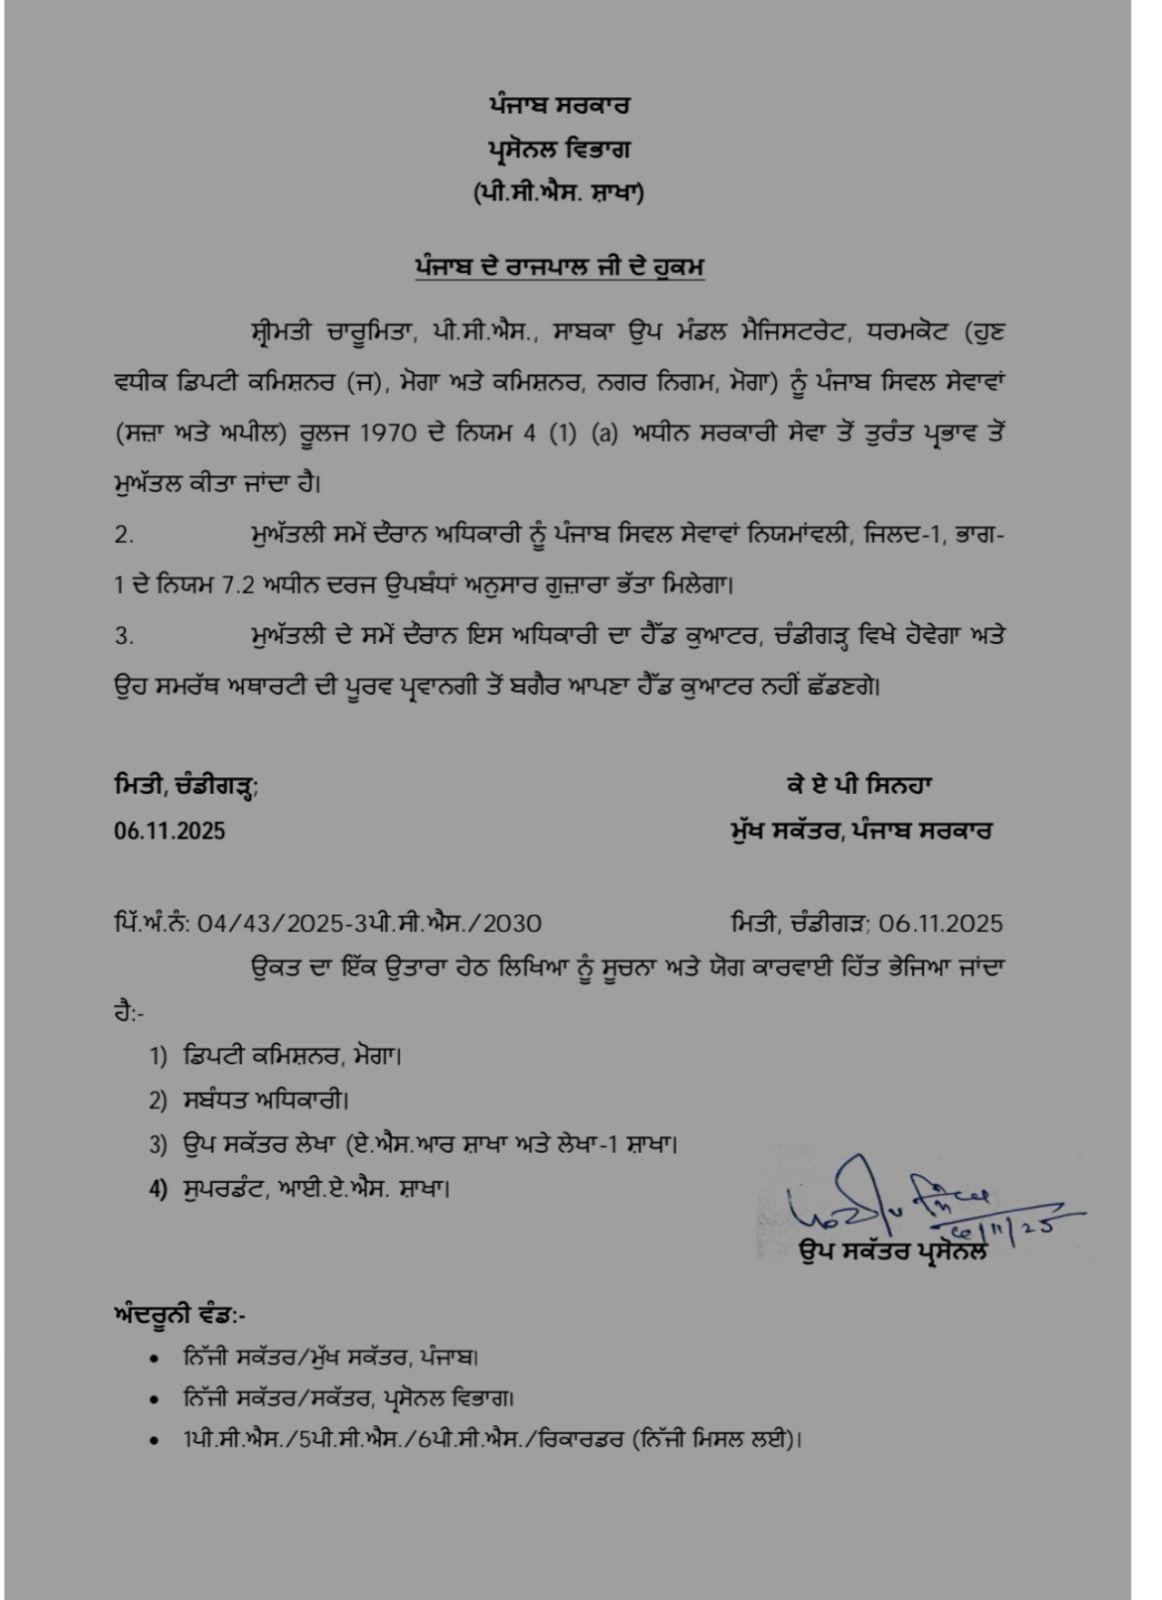 ਪੰਜਾਬ ਸਰਕਾਰ
ਪ੍ਰਸੋਨਲ ਵਿਭਾਗ
(ਪੀ.ਸੀ.ਐਸ. ਸ਼ਾਖਾ)
ਪੰਜਾਬ ਦੇ ਰਾਜਪਾਲ ਜੀ ਦੇ ਹੁਕਮ
ਸ਼੍ਰੀਮਤੀ ਚਾਰੂਮਿਤਾ, ਪੀ.ਸੀ.ਐਸ., ਸਾਬਕਾ ਉਪ ਮੰਡਲ ਮੈਜਿਸਟਰੇਟ, ਧਰਮਕੋਟ (ਹੁਣ
ਵਧੀਕ ਡਿਪਟੀ ਕਮਿਸ਼ਨਰ (ਜ), ਮੋਗਾ ਅਤੇ ਕਮਿਸ਼ਨਰ, ਨਗਰ ਨਿਗਮ, ਮੋਗਾ) ਨੂੰ ਪੰਜਾਬ ਸਿਵਲ ਸੇਵਾਵਾਂ
(ਸਜ਼ਾ ਅਤੇ ਅਪੀਲ) ਰੂਲਜ 1970 ਦੇ ਨਿਯਮ 4 (1) (a) ਅਧੀਨ ਸਰਕਾਰੀ ਸੇਵਾ ਤੋਂ ਤੁਰੰਤ ਪ੍ਰਭਾਵ ਤੋਂ
ਮੁਅੱਤਲ ਕੀਤਾ ਜਾਂਦਾ ਹੈ।
2. ਮੁਅੱਤਲੀ ਸਮੇਂ ਦੌਰਾਨ ਅਧਿਕਾਰੀ ਨੂੰ ਪੰਜਾਬ ਸਿਵਲ ਸੇਵਾਵਾਂ ਨਿਯਮਾਂਵਲੀ, ਜਿਲਦ-1, ਭਾਗ-
1 ਦੇ ਨਿਯਮ 7.2 ਅਧੀਨ ਦਰਜ ਉਪਬੰਧਾਂ ਅਨੁਸਾਰ ਗੁਜ਼ਾਰਾ ਭੱਤਾ ਮਿਲੇਗਾ।
3. ਮੁਅੱਤਲੀ ਦੇ ਸਮੇਂ ਦੌਰਾਨ ਇਸ ਅਧਿਕਾਰੀ ਦਾ ਹੈੱਡ ਕੁਆਟਰ, ਚੰਡੀਗੜ੍ਹ ਵਿਖੇ ਹੋਵੇਗਾ ਅਤੇ
ਉਹ ਸਮਰੱਥ ਅਥਾਰਟੀ ਦੀ ਪੂਰਵ ਪ੍ਰਵਾਨਗੀ ਤੋਂ ਬਗੈਰ ਆਪਣਾ ਹੈੱਡ ਕੁਆਟਰ ਨਹੀਂ ਛੱਡਣਗੇ।
ਮਿਤੀ, ਚੰਡੀਗੜ੍ਹ; ਕੇ ਏ ਪੀ ਸਿਨਹਾ
06.11.2025 ਮੁੱਖ ਸਕੱਤਰ, ਪੰਜਾਬ ਸਰਕਾਰ
ਪਿੱ.ਅੰ.ਨੰ: 04/43/2025-3ਪੀ.ਸੀ.ਐਸ./2030 ਮਿਤੀ, ਚੰਡੀਗੜ; 06.11.2025
ਉਕਤ ਦਾ ਇੱਕ ਉਤਾਰਾ ਹੇਠ ਲਿਖਿਆ ਨੂੰ ਸੂਚਨਾ ਅਤੇ ਯੋਗ ਕਾਰਵਾਈ ਹਿੱਤ ਭੇਜਿਆ ਜਾਂਦਾ
ਹੈ:-
1) ਡਿਪਟੀ ਕਮਿਸ਼ਨਰ, ਮੋਗਾ।
2) ਸਬੰਧਤ ਅਧਿਕਾਰੀ।
3) ਉਪ ਸਕੱਤਰ ਲੇਖਾ (ਏ.ਐਸ.ਆਰ ਸ਼ਾਖਾ ਅਤੇ ਲੇਖਾ-1 ਸ਼ਾਖਾ।
4) ਸੁਪਰਡੰਟ, ਆਈ.ਏ.ਐਸ. ਸ਼ਾਖਾ।
ਉਪ ਸਕੱਤਰ ਪ੍ਰਸੋਨਲ
ਅੰਦਰੂਨੀ ਵੰਡ:-
• ਨਿੱਜੀ ਸਕੱਤਰ/ਮੁੱਖ ਸਕੱਤਰ, ਪੰਜਾਬ।
• ਨਿੱਜੀ ਸਕੱਤਰ/ਸਕੱਤਰ, ਪ੍ਰਸੋਨਲ ਵਿਭਾਗ।
• 1ਪੀ.ਸੀ.ਐਸ./5ਪੀ.ਸੀ.ਐਸ./6ਪੀ.ਸੀ.ਐਸ./ਰਿਕਾਰਡਰ (ਨਿੱਜੀ ਮਿਸਲ ਲਈ)।